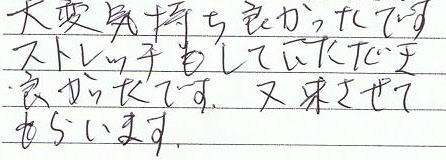 大変気持ち良かったです
ストレッチもしていただき
良かったです。又来させて
もらいます。